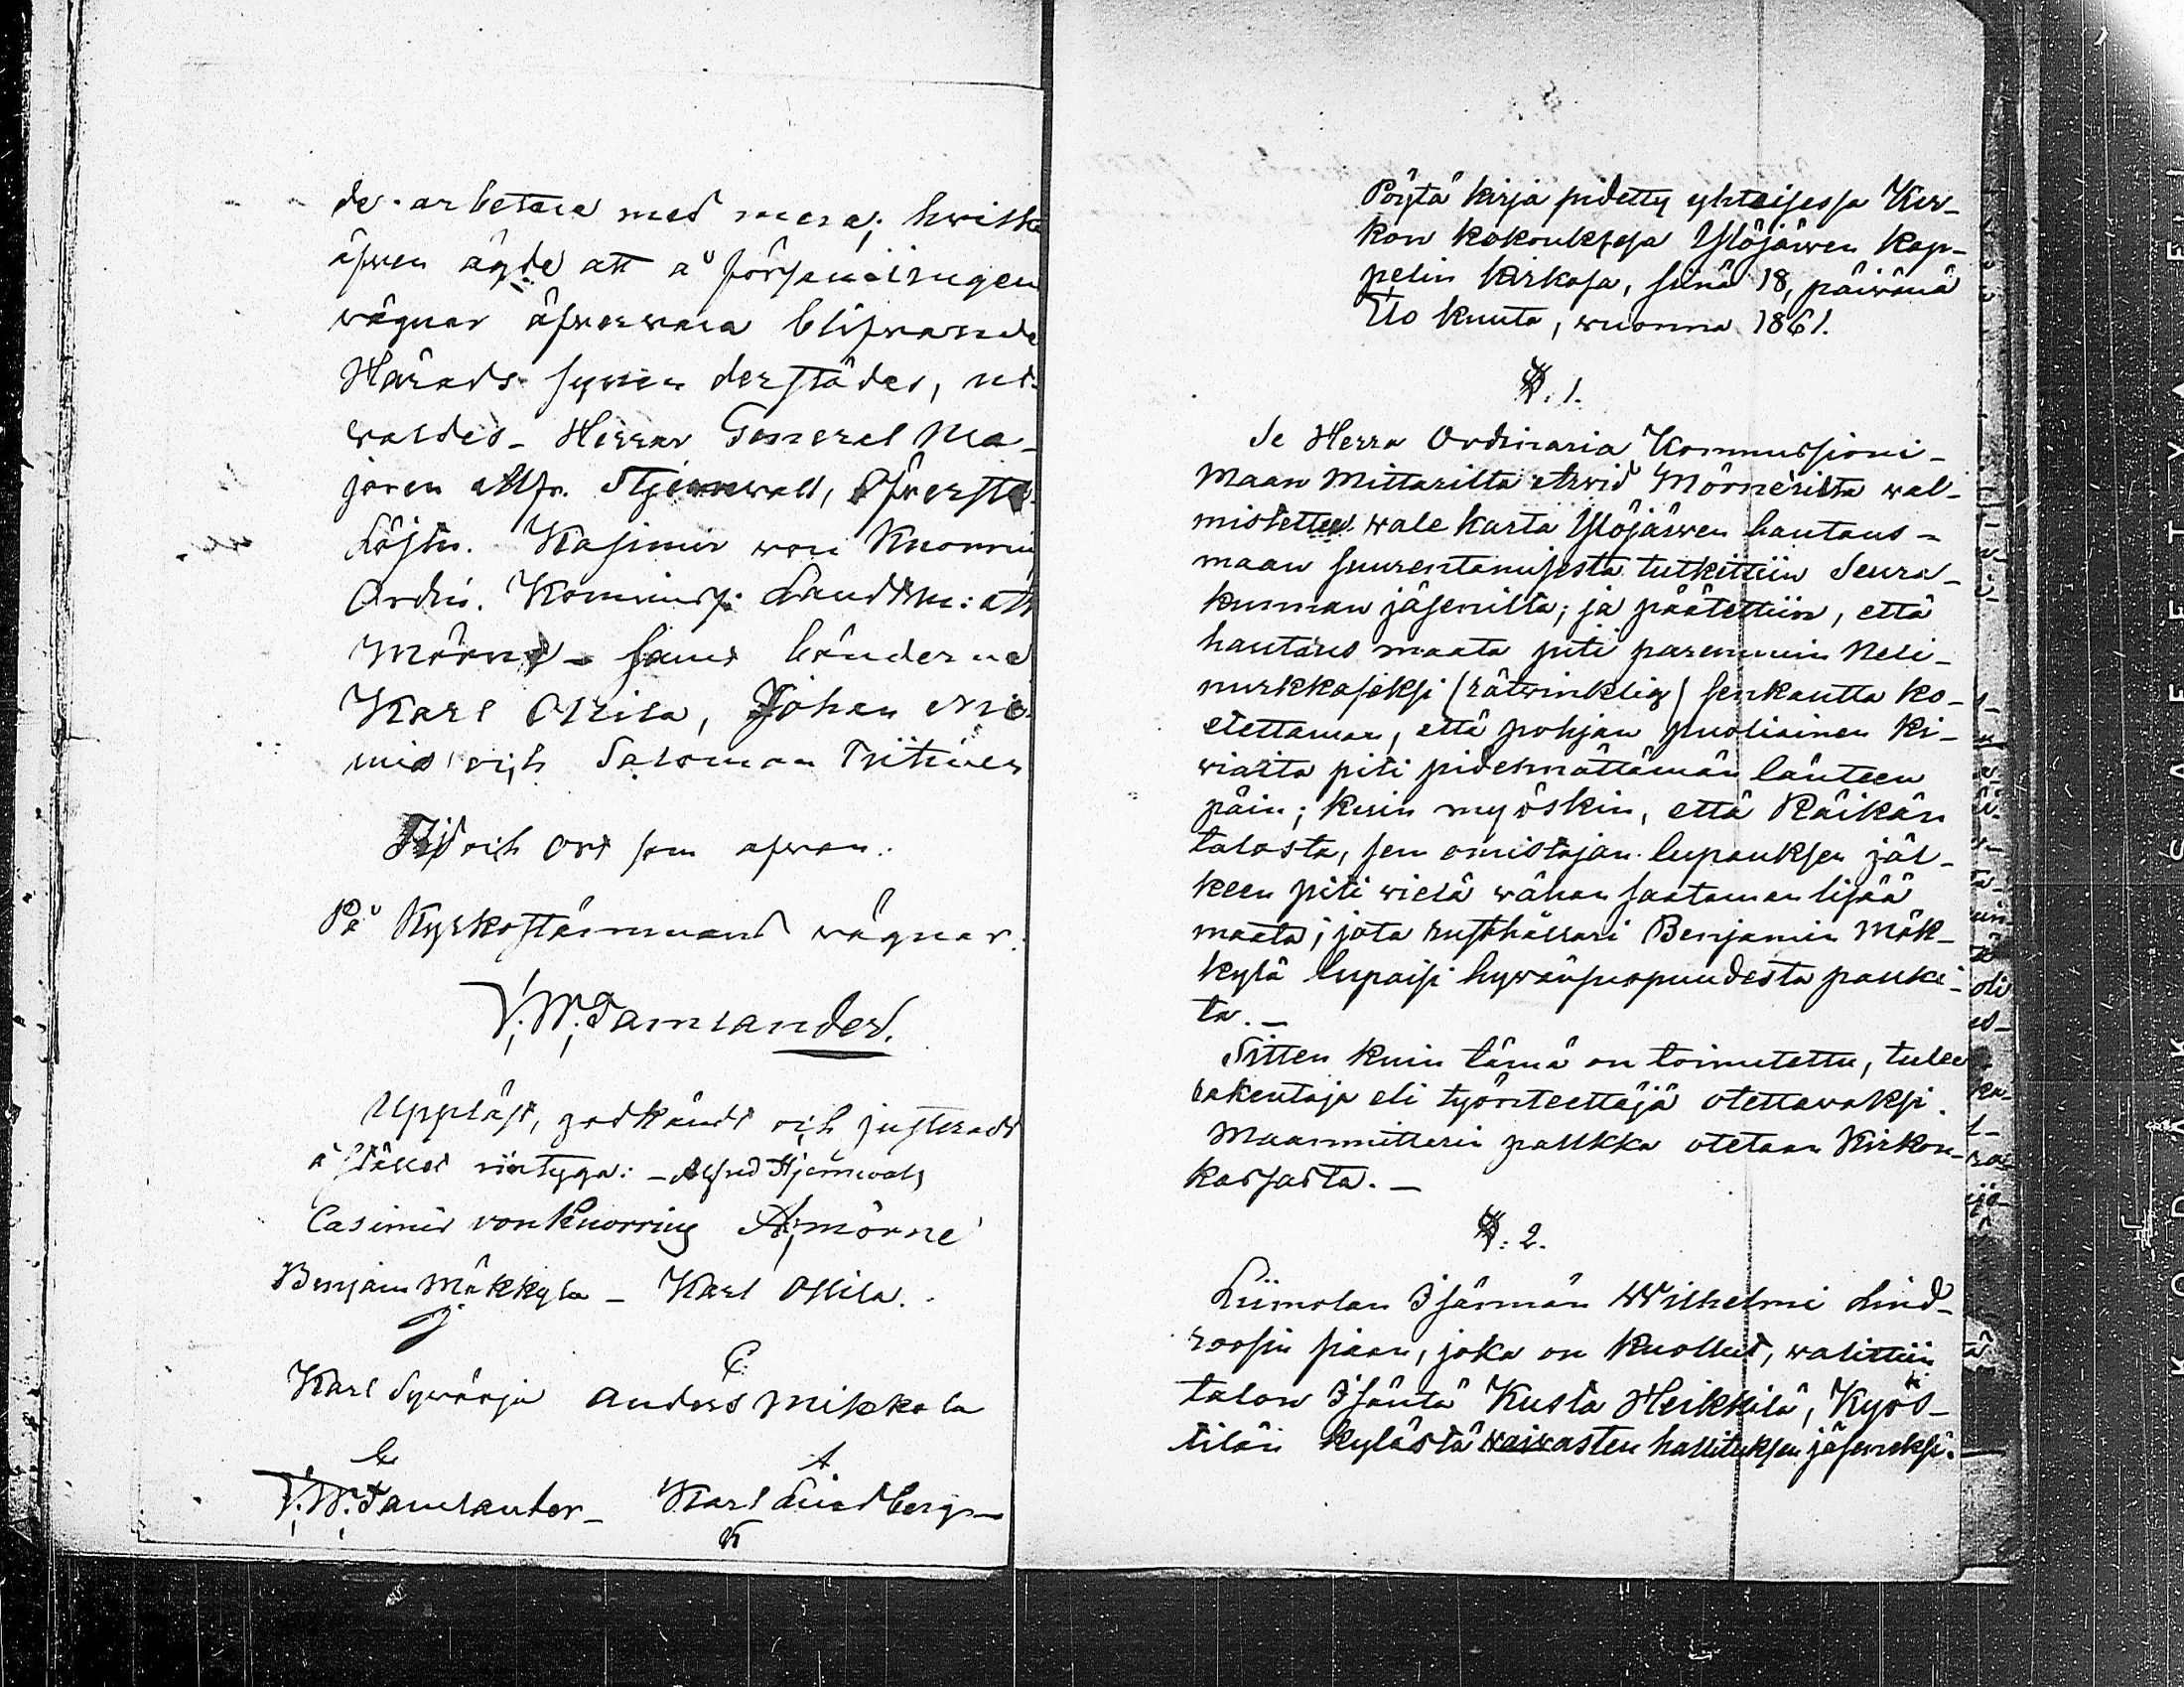 de arbetare med mera; hwilka
äfwen ägde att å församlingens
wägnar öfwerwara blifwande
Härads synen derstädes, ut-
waldes Herrar General Ma-
joren Alfr. Stjernwall, Öfverste
Löjtn. Kasimir von Knorring
Ordin. Kommiss: Landtm: A
Mörne samt bönderne
Karl Ollila, Johan Nie-
mis och Salomon Tiitinen
Tid och Ort som ofwan.
På Kyrkostämmans wägnar:
V. W. Tamlander.
Uppläst, godkändt och justeradt
å stället intyga: – Alfred Stjernwall
Casimir von Knorring A. Mörne
Benjam Mäkkyla – Karl Ollila.
Karl Sywärja Anders Mikkola
V. W. Tamlander – Karl Lindberg –
Pöytä kirja pidetty yhteisessä Kir-
kon kokouksessa Ylöjärwen kap-
pelin kirkosa, sinä 18, päiwänä
Elo kuuta, wuonna 1861.
§. 1.
Se Herra Ordinaria Kommissioni-
Maan Mittarilta Arvid Mörneriltä wal-
mistettu wale karta Ylöjärwen hautaus-
maan suurentamisesta tutkittiin Seura-
kunnan jäseniltä; ja päätettiin, että
hautaus maata piti paremmin neli-
nurkkaseksi (rätwinklig) senkautta ko-
etettaman, että pohjan puoliainen ki-
wiaita piti pidennättämän länteen
päin; kuin myöskin, että Räikän
talosta, sen omistajan lupauksen jäl-
keen piti wielä wähän saataman lisää
maata; jota rusthållari Benjamin Mäk-
kylä lupaisi hywänsuopuudesta pauki-
ta. –
Sitten kuin tämä on toimitettu, tulee
rakentaja eli työnteettäjä otettawaksi.
Maanmittarin palkka otetaan Kirkon-
kassasta. –
§. 2.
Liimolan Isännän Wilhelmi Lind-
roosin siaan, joka on kuollut, walittiin
talon Isäntä Kusta Heikkilä, Kyös-
tilän kylästä waiwasten hallituksen jäseneksi.